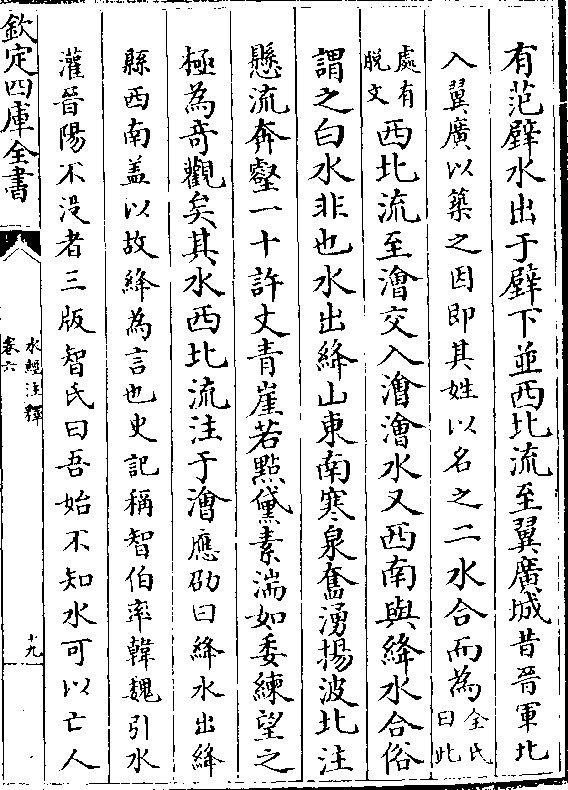 有范壁水出于壁下並西北流至翼廣城昔晉軍北
入翼廣以築之因即其姓以名之二水合而為全氏曰此
處有脫文西北流至澮交入澮澮水又西南與絳水合俗
謂之白水非也水出絳山東南寒泉奮湧揚波北注
懸流奔壑一十許丈青崖若點黛素湍如委練望之
極為奇觀矣其水西北流注于澮應劭曰絳水出絳
縣西南盖以故絳為言也史記稱智伯率韓魏引水
灌晉陽不没者三版智氏曰吾始不知水可以亡人
欽定四庫全書
水經注釋
卷六
十九